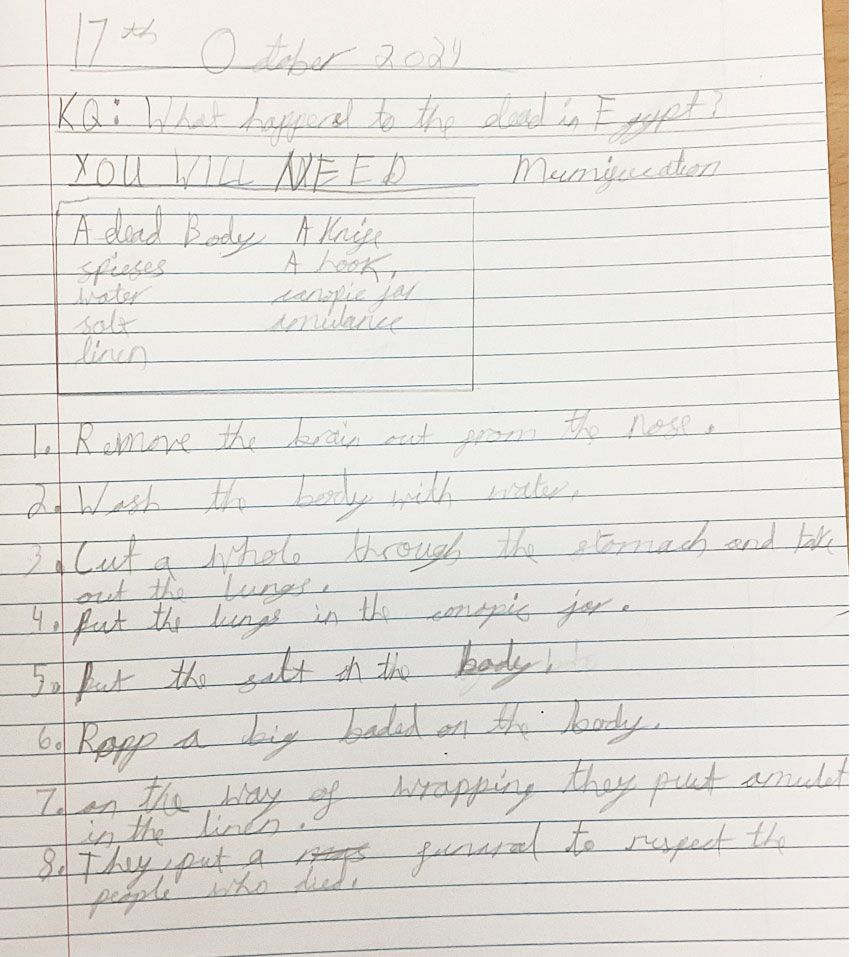 17th October 2024
KQ: What happend to the dead in Egypt?
YOU WILL NEED Mumification
A dead Body A Knife
spieses A hook,
water canopic jar
salt amulance
linen
1. Remove the brain out from the nose.
2. Wash the body with water.
3. Cut a whole through the stomach and take
out the lungs.
4. Put the lungs in the conopic jar.
5. Put the salt in the body.
6. Rapp a big baded on the body.
7. on the way of wrapping they put amulet
in the linen.
8. They put a funural to respect the
people who died.